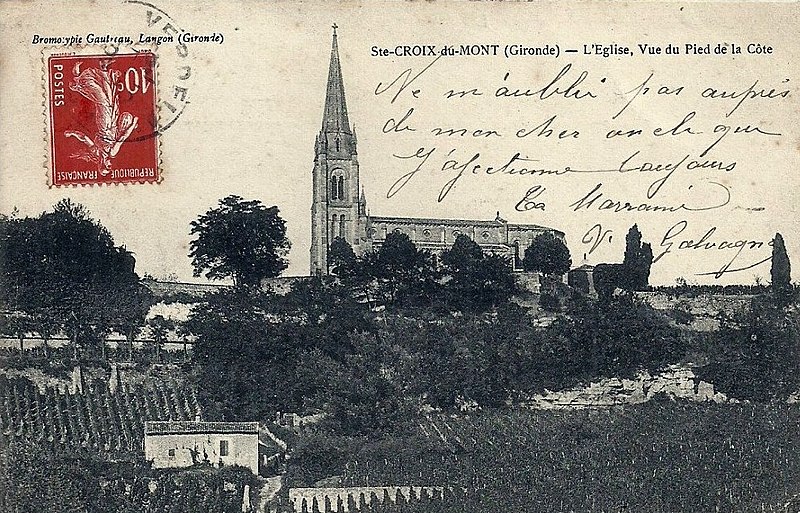 Bromotypie Gautreau, Langon (Gironde)
Ste-CROIX-du-MONT (Gironde) — L'Eglise, Vue du Pied de la Côte
POSTES
10c
REPUBLIQUE FRANÇAISE
VERDELAIS
Ne m'oublie pas auprès
de mon cher oncle que
J'affectionne toujours
Ta Marraine
V. Galvagne